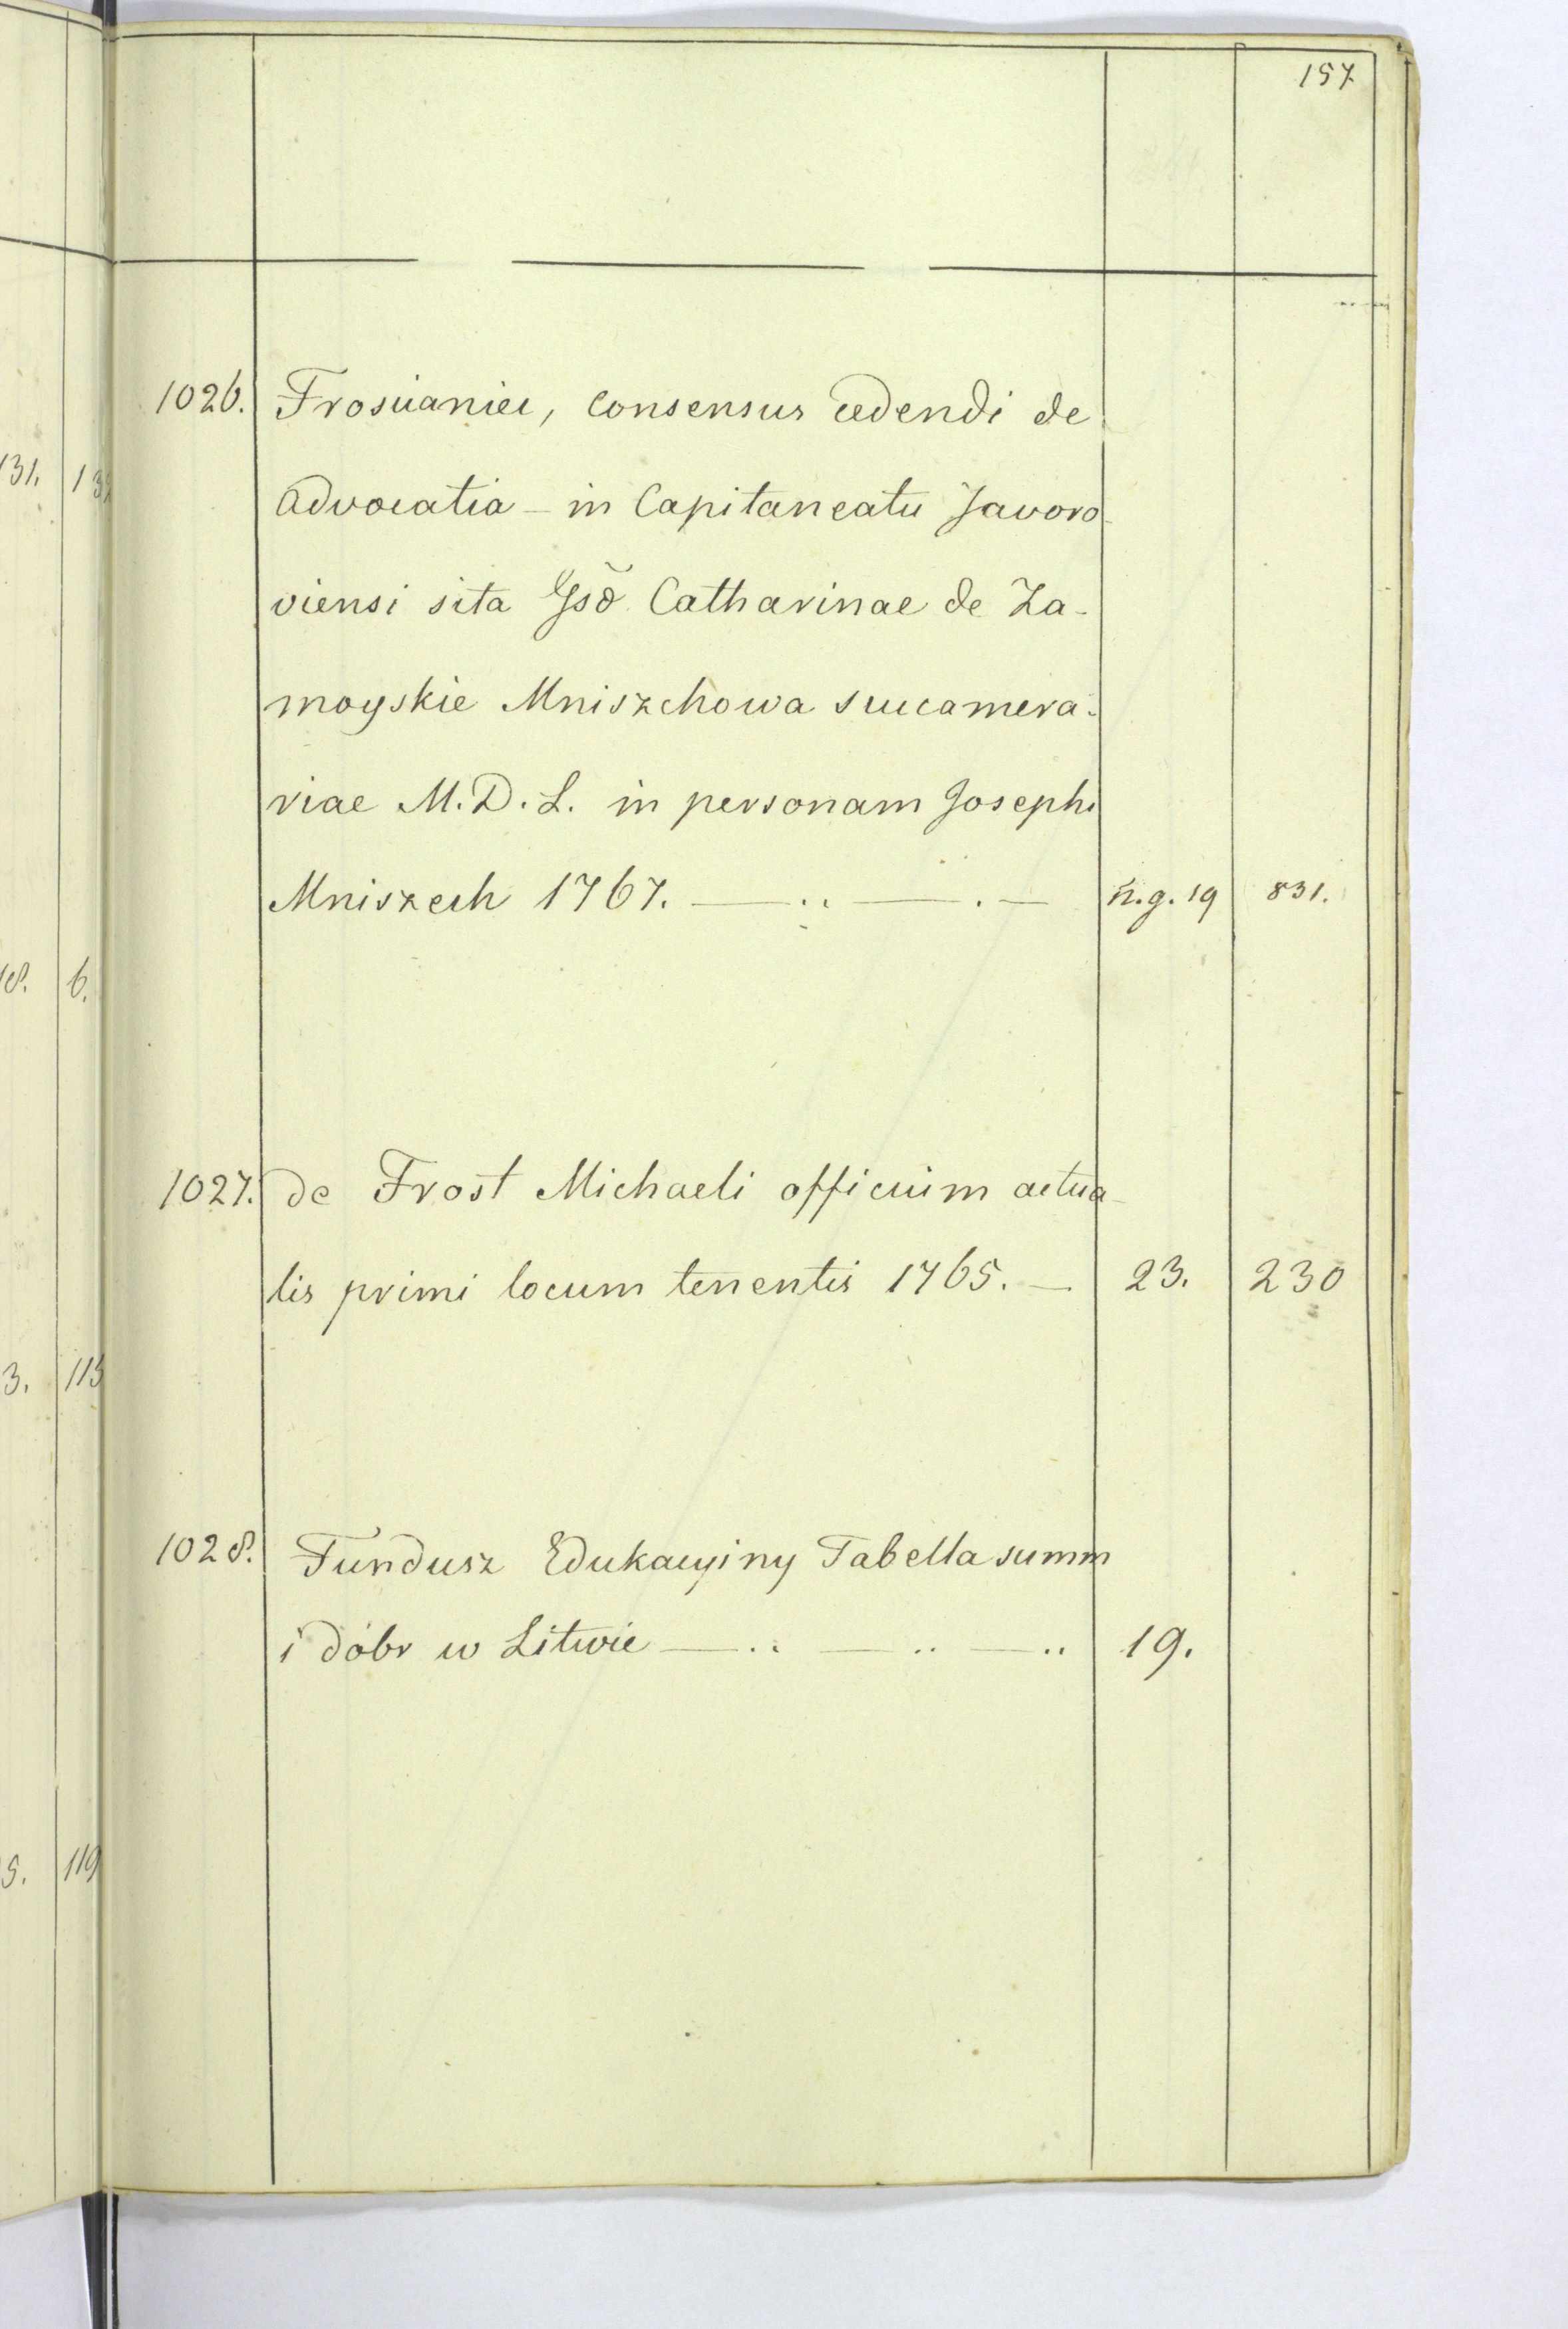 157
1026. Froscianiec, consensus cedendi de
advocatia – in Capitaneatu Javoro-
viensi sita Catharinae de Za-
moyskie Mniszchowa succamera-
riae M.D.L. in personam Josephi
Mniszech 1767. — .. — . — n.g. 19 831.
1027. de Frost Michaeli officium actua-
lis primi locum tenentis 1765. — 23. 230
1028. Fundusz Edukacyiny Tabella summ
i dóbr w Litwie — .. — .. — .. 19.
131.
18. 6.
3. 113
5. 119